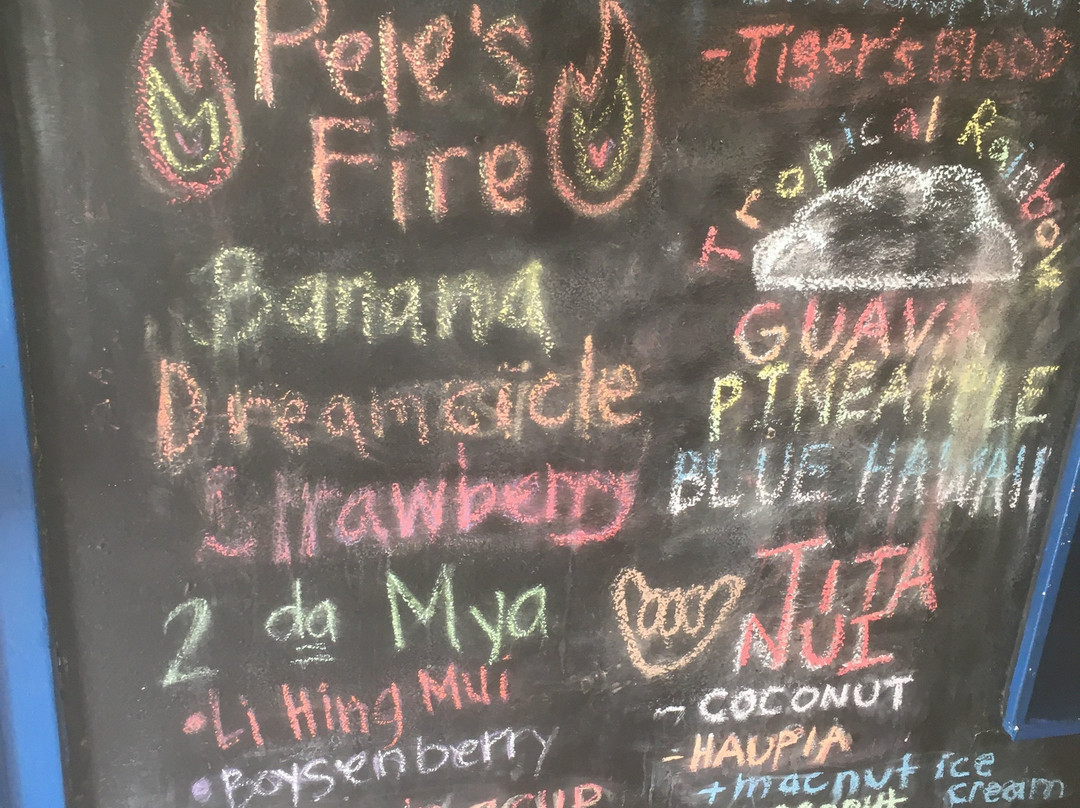 Pele's
Fire
Banana
Dreamsicle
Strawberry
2 da Mya
• Li Hing Mui
• Boysenberry
- Tiger's Blood
Tropical Rainbow
GUAVA
PINEAPPLE
BLUE HAWAII
TITA
NUI
- COCONUT
- HAUPIA
+ macnut ice
cream